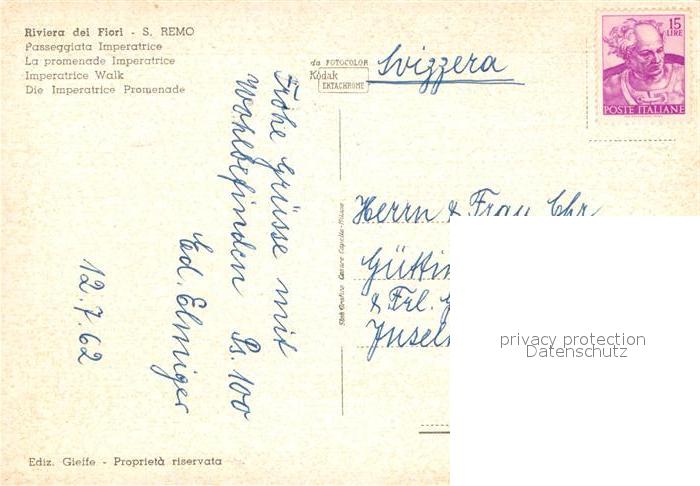 Riviera dei Fiori - S. REMO
Passeggiata Imperatrice
La promenade Imperatrice
Imperatrice Walk
Die Imperatrice Promenade
da FOTOCOLOR
Kodak
EKTACHROME
Svizzera
15
LIRE
POSTE ITALIANE
Frohe Grüsse mit
Wohlbefinden Ps. 100
Ed. Elmiger
12.7.62
Stab. Grafico Cesare Capello - Milano
Herrn & Frau Chr.
& Frl.
privacy protection
Datenschutz
Ediz. Gieffe - Proprietà riservata